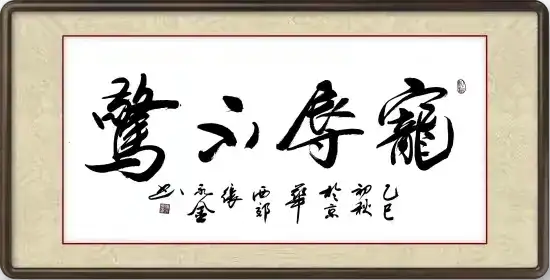 寵辱不驚
乙巳
初秋
於京
華
西郊
張
永金
书